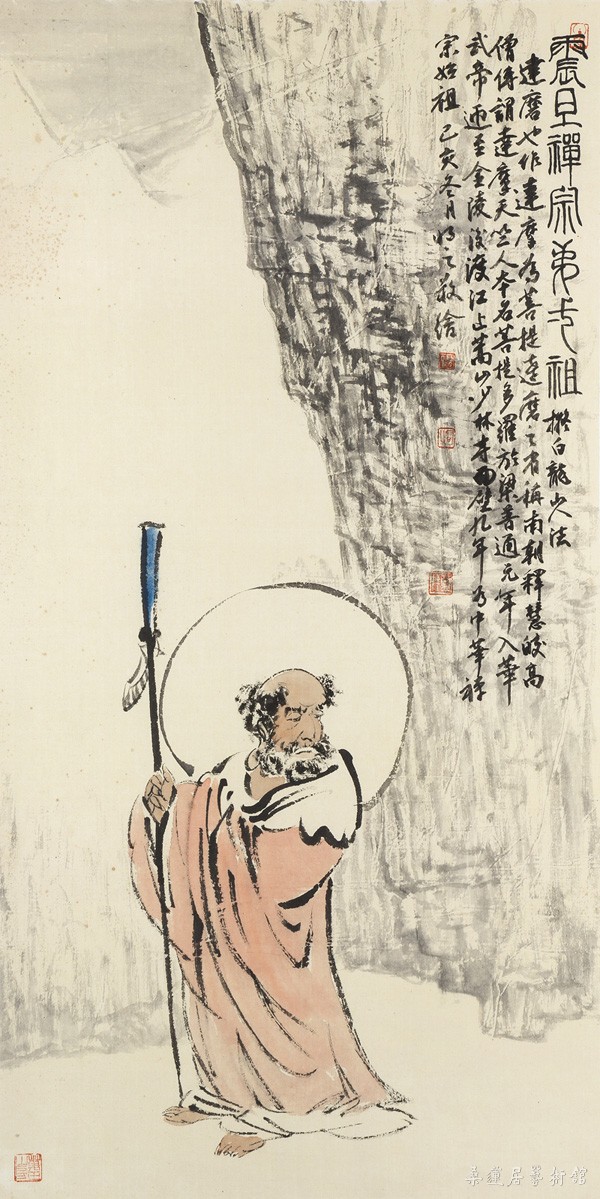 震旦禪宗弟弌祖 橅白龍山人法
達磨也作達摩為菩提達磨之省稱南朝釋慧皎高
僧傳謂達摩天竺人本名菩提多羅於梁普通元年入華
武帝迎至金陵後渡江止嵩山少林寺面壁九年為中華禪
宗始祖 己亥冬月 敬繪
桑蓮居藝術館